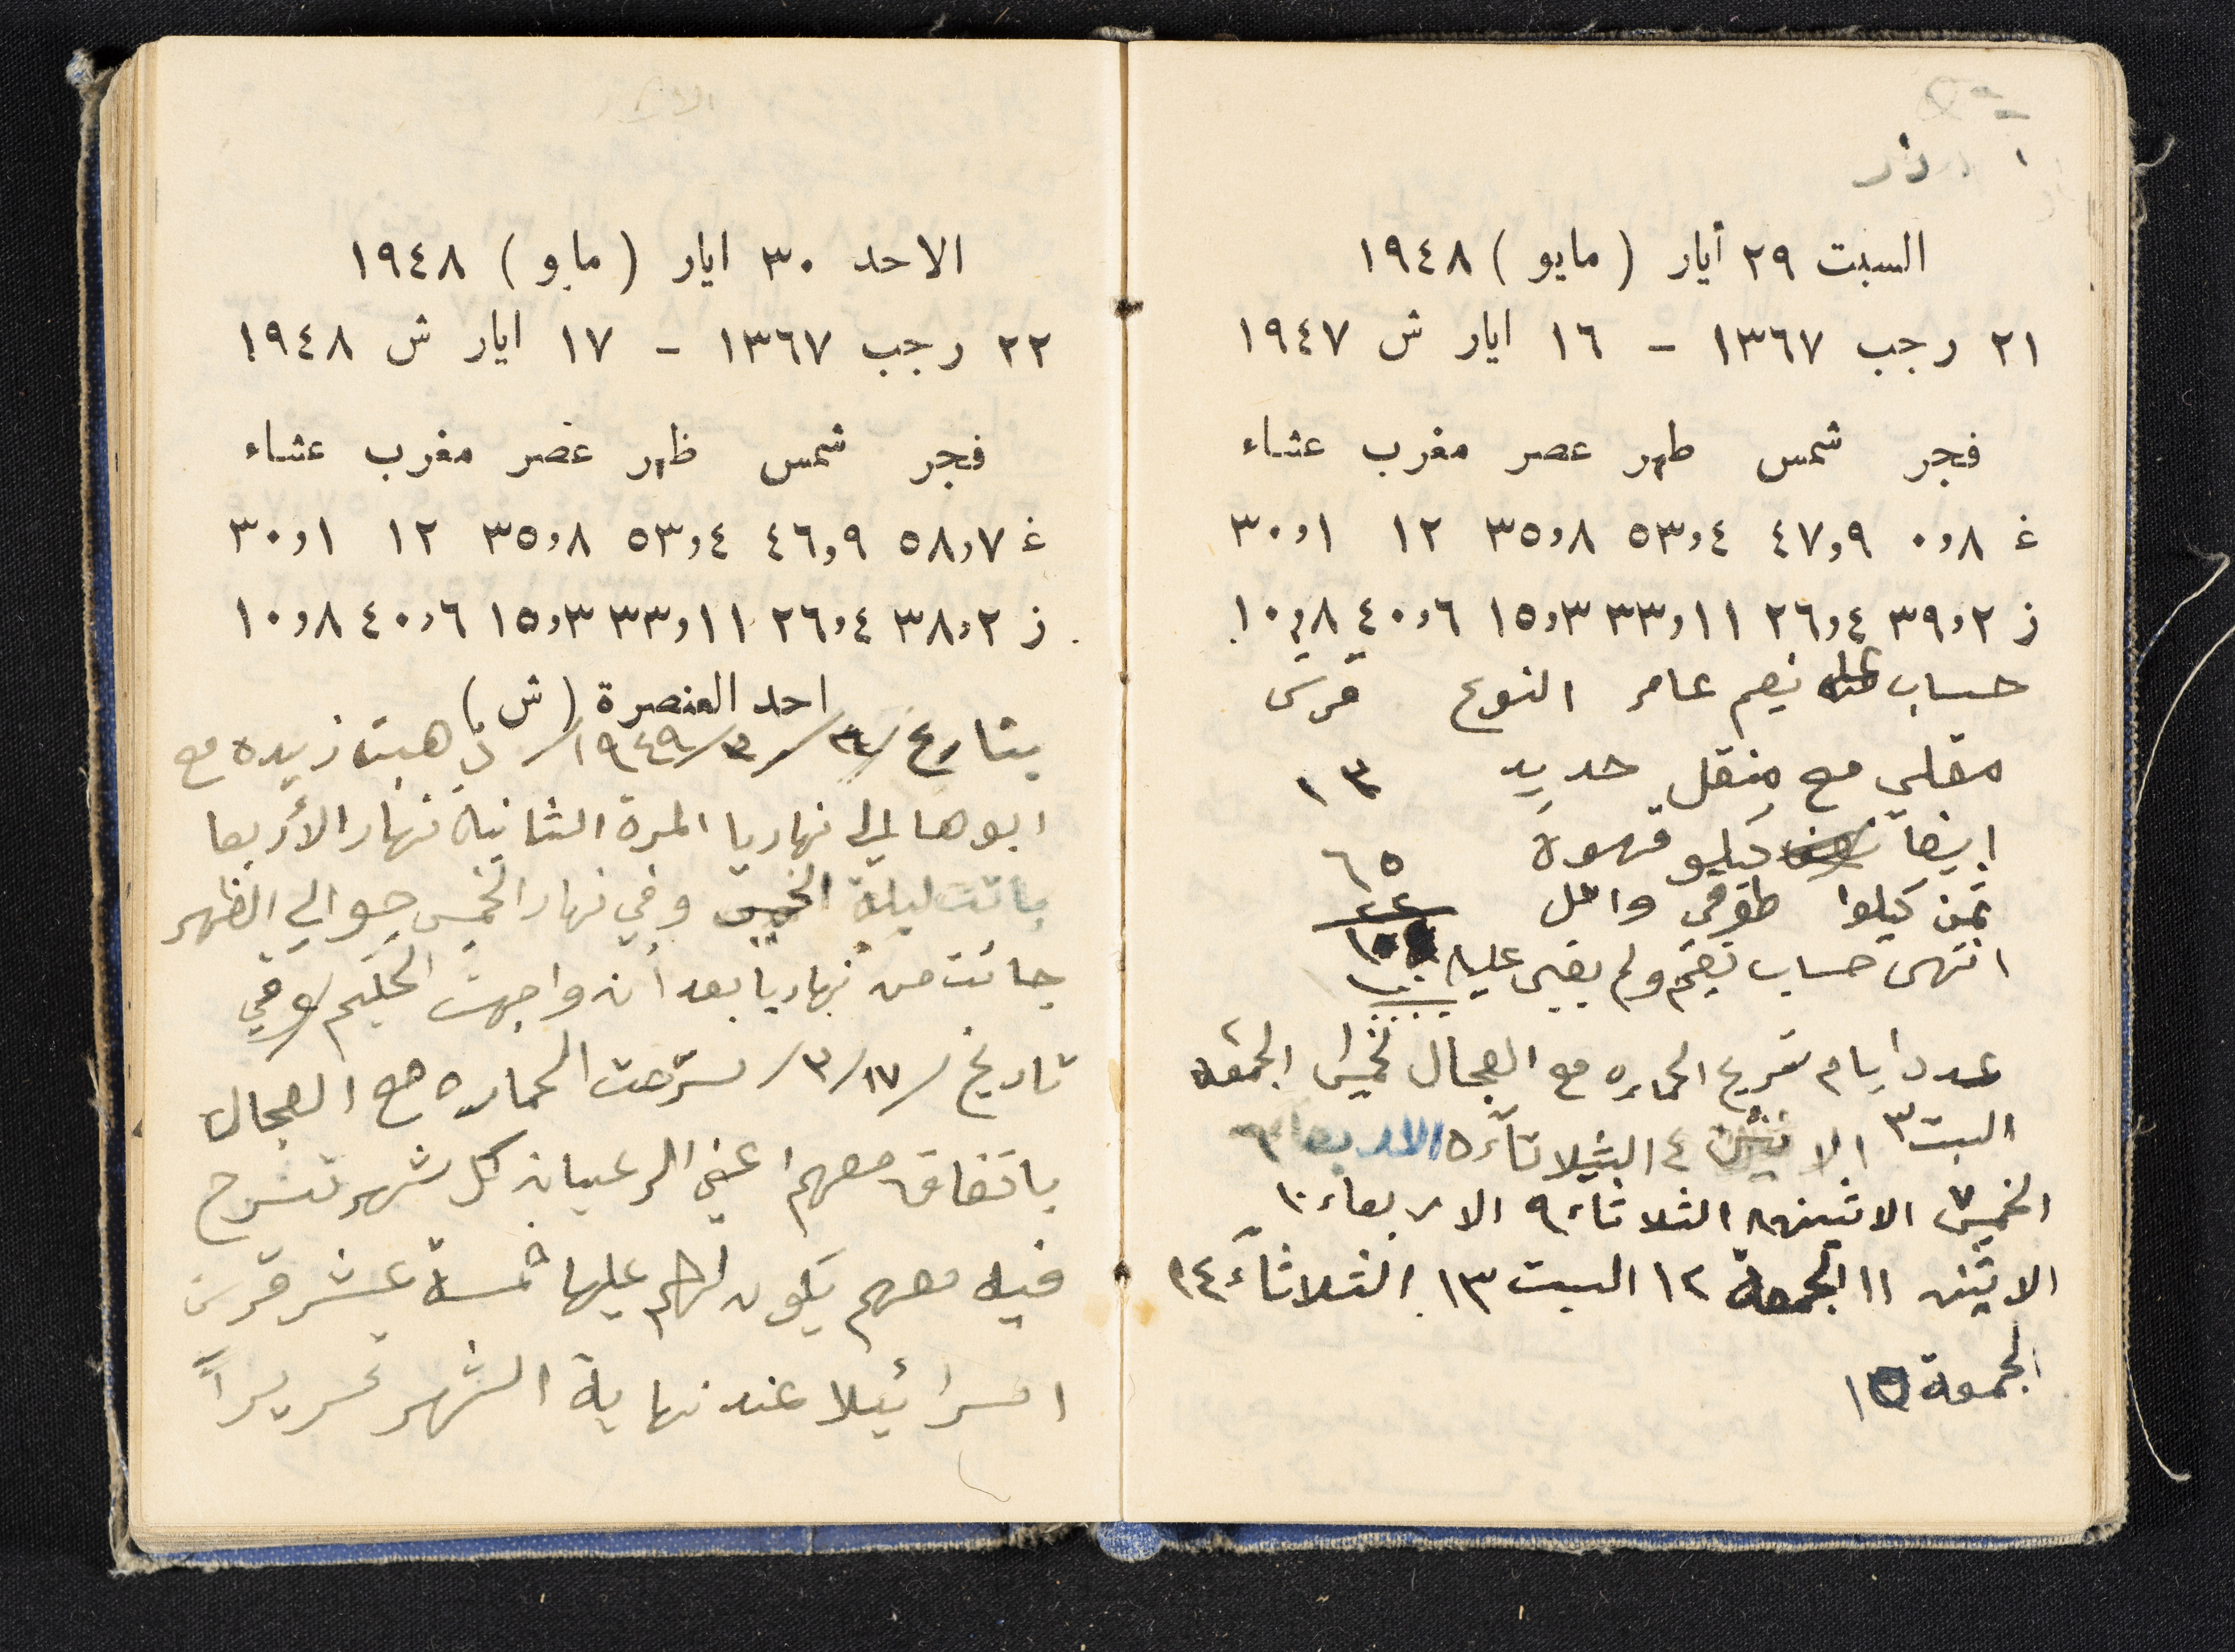 السبت ٢٩ أيار (مايو) ١٩٤٨
٢١ رجب ١٣٦٧ – ١٦ ايار ش ١٩٤٧
فجر شمس ظهر عصر مغرب عشاء
غ ٠٫٨ ٤٧٫٩ ٥٣٫٤ ٣٥٫٨ ١٢ ٣٠٫١
ز ٣٩٫٢ ٢٦٫٤ ٣٣٫١١ ١٥٫٣ ٤٠٫٦ ١٠٫٨
حساب نعيم عامر النوع قرش
مقلي مع منقل حديد ١٣
ايضاً كيلو قهوة ٦٥
ثمن كيلوا ٢٢
انتهى حساب نعيم ولم يبقى عليه ١٠٠
عدد ايام تسريح الحماره مع العجال الخميس الجمعه ٢
السبت ٣ الاثنين ٤ الثيلاثاء ٥ الاربعاء ٦
الخميس ٧ الاثنين ٨ الثلاثاء ٩ الاربعاء ١٠
الاثنين ١١ الجمعة ١٢ السبت ١٣ الثلاثاء ١٤
الجمعة ١٥
الاحد ٣٠ ايار (مايو) ١٩٤٨
٢٢ رجب ١٣٦٧ – ١٧ ايار ش ١٩٤٨
فجر شمس ظهر عصر مغرب عشاء
غ ٥٨٫٧ ٤٦٫٩ ٥٣٫٤ ٣٥٫٨ ١٢ ٣٠٫١
ز ٣٨٫٢ ٢٦٫٤ ٣٣٫١١ ١٥٫٣ ٤٠٫٦ ١٠٫٨
احد العنصرة (ش)
بتاريخ /٣/١٩٤٩/ ذهبت زيده مع
ابوها الى نهاريا المرة الثانية نهار الأربعا
باتت ليلة الخميس وفي نهار الخميس حوالي الظهر
جائت من نهاريا بعد أن واجهت الحكيم / وفي
تاريخ /١٧/٣/ سرحت الحماره مع العجال
باتفاق معهم اعني الرعيان كل شهر تسرح
فيه معهم يكون لهم عليها خمسة عشر قرش
اسرائيلا عند نهاية الشهر تحريراً